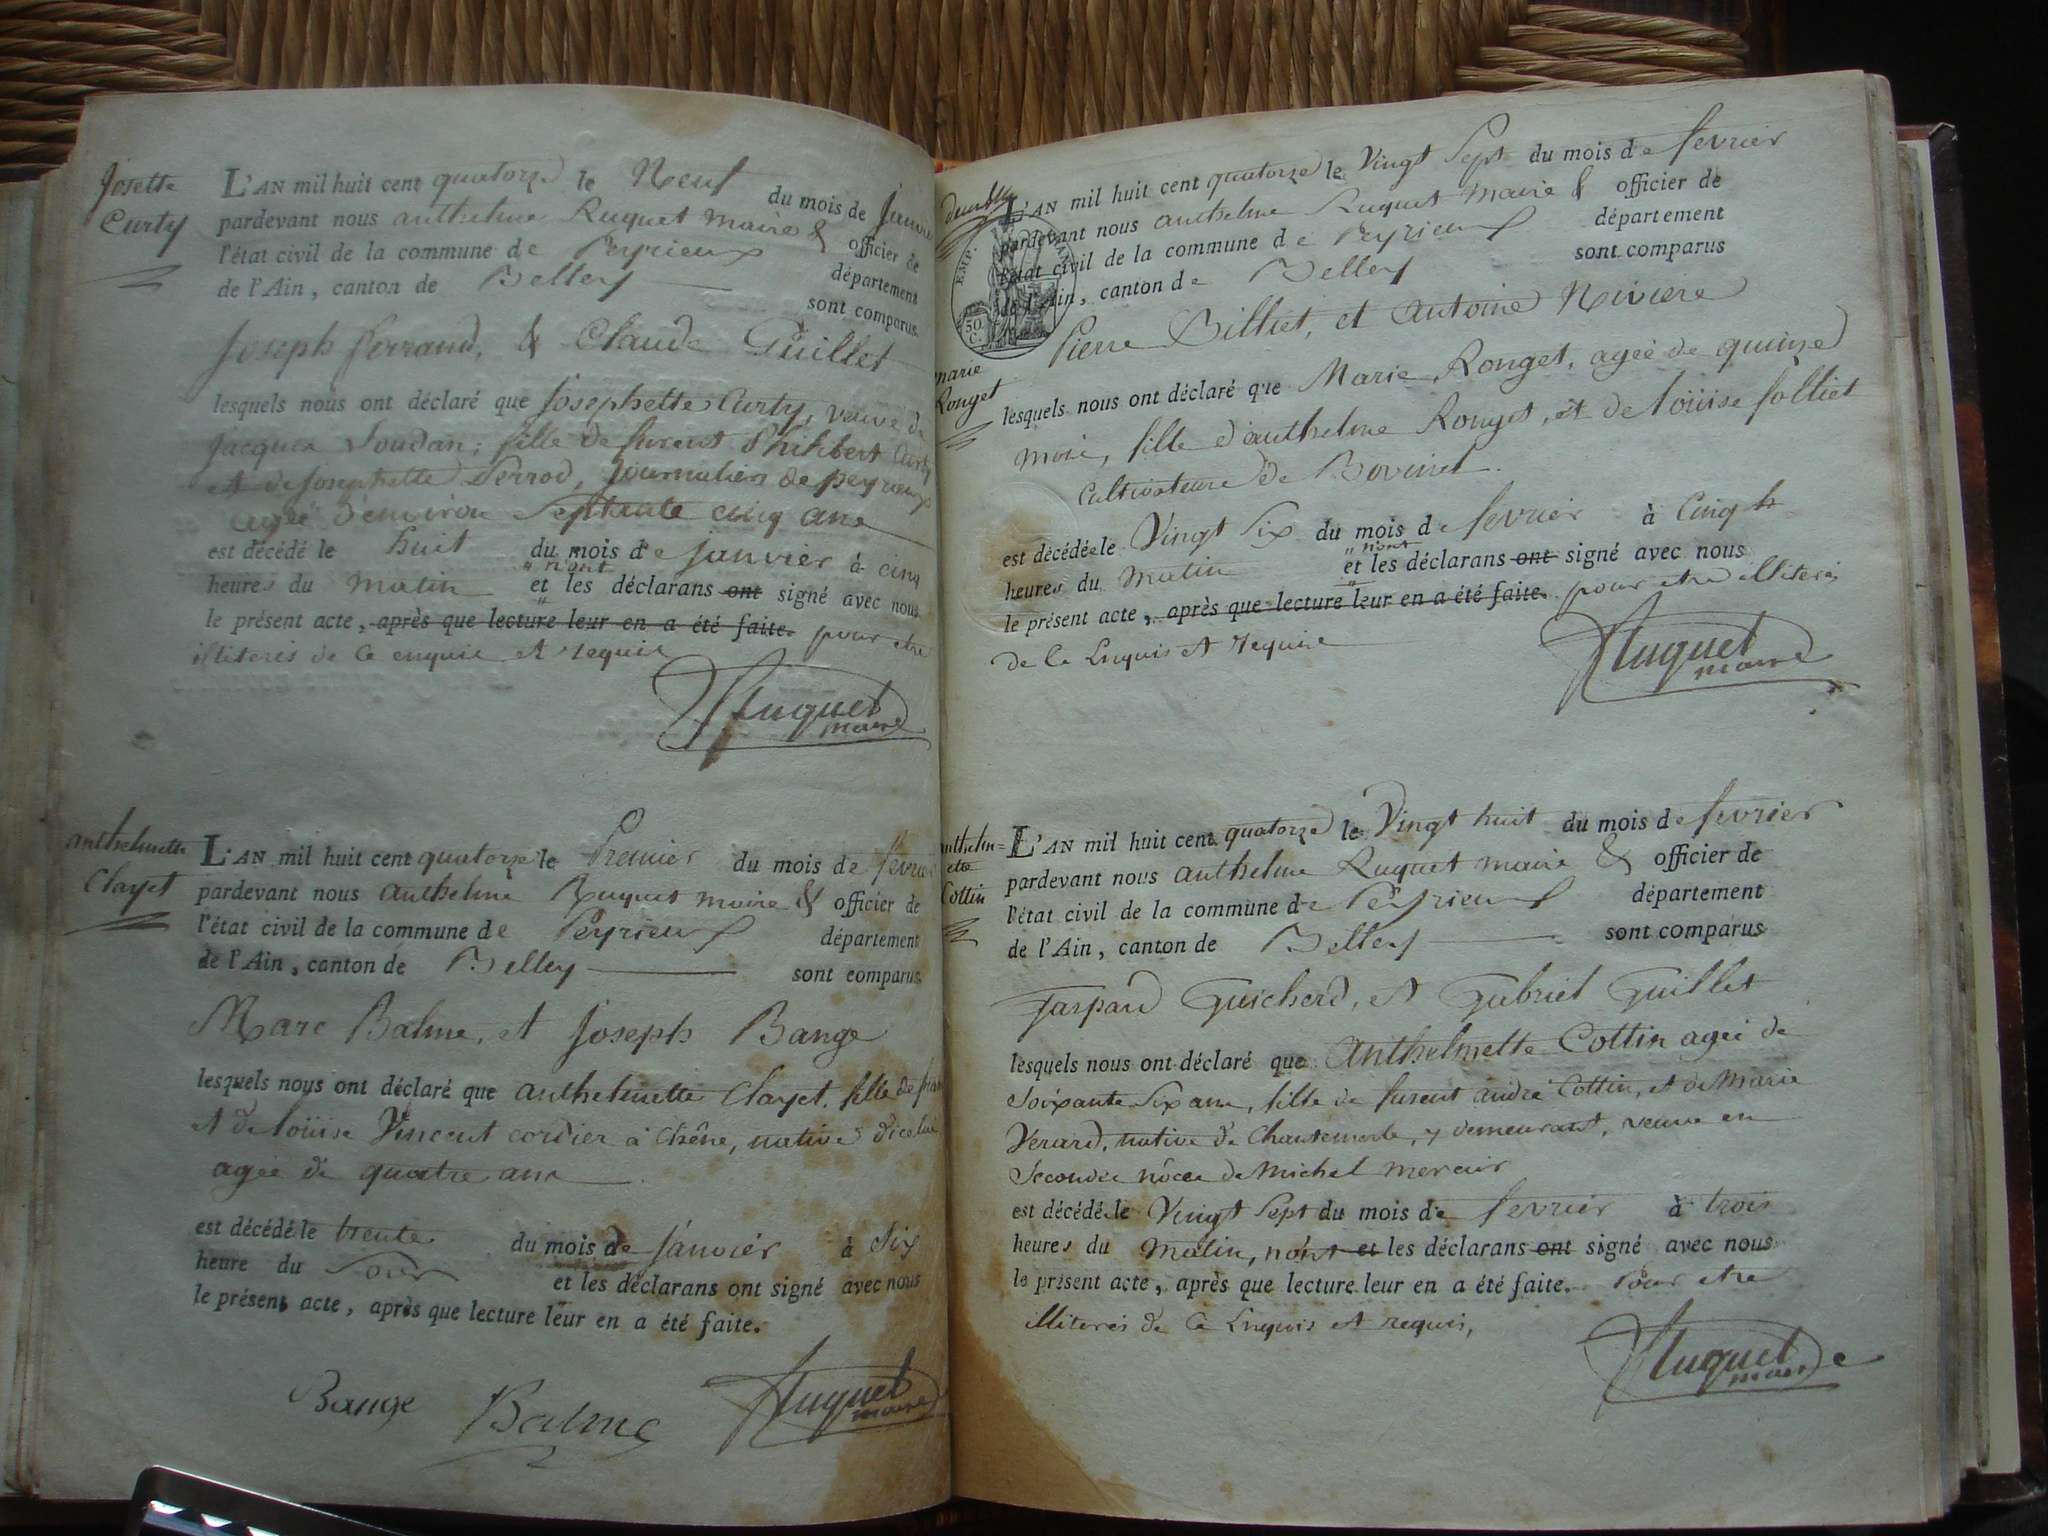 Josette
Curty
L'AN mil huit cent quatorze le Neuf du mois de Janvier
pardevant nous anthelme Ruquet maire & officier de
l'état civil de la commune de Peyrieux département
de l'Ain, canton de Belley sont comparus
Joseph ferrand, & Claude Guillet
lesquels nous ont déclaré que Josephette Curty, veuve de
Jacques Soudan; fille de furent Philibert Curty
et de Josephette Perrod, journaliers de peyrieux
agée d'environ Septante cinq ans
est décédé le huit du mois de janvier à cinq
heures du matin et les déclarans ont signé avec nous
"n'ont
le présent acte, après que lecture leur en a été faite. pour etre
illiterés de ce enquis et requis
Ruquet
maire
anthelmette
Clayet
L'AN mil huit cent quatorze le Premier du mois de fevrier
pardevant nous anthelme Ruquet maire & officier de
l'état civil de la commune de Peyrieux département
de l'Ain, canton de Belley sont comparus
Marc Balme, et Joseph Bange
lesquels nous ont déclaré que anthelmette Clayet, fille de
et de louise Vincent cordier à chêne, native
agée de quatre ans
est décédé le trente du mois de janvier à Six
heure du Soir et les déclarans ont signé avec nous
le présent acte, après que lecture leur en a été faite.
Bange Balme Ruquet
maire
L'AN mil huit cent quatorze le Vingt Sept du mois de fevrier
pardevant nous anthelme Ruquet maire & officier de
l'état civil de la commune de Peyrieux département
de l'Ain, canton de Belley sont comparus
EMP.
50
C.
Pierre Billiet, et antoine Riviere
marie
Ronget
lesquels nous ont déclaré que Marie Ronget, agée de quinze
mois, fille d'anthelme Ronget, et de louise folliet
Cultivateurs de Bovinel.
est décédée le Vingt Six du mois de fevrier à Cinq h
heures du Matin et les déclarans ont signé avec nous
"n'ont
le présent acte, après que lecture leur en a été faite. pour etre illiterés
de ce Enquis et requis
Ruquet
maire
anthelm=
ette
Cottin
L'AN mil huit cent quatorze le Vingt huit du mois de fevrier
pardevant nous anthelme Ruquet maire & officier de
l'état civil de la commune de Peyrieux département
de l'Ain, canton de Belley sont comparus
Gaspard Guicherd, et Gabriel Guillet
lesquels nous ont déclaré que Anthelmette Cottin agée de
Soixante Six ans, fille de furent andré Cottin, et de Marie
Verard, native de Chantemerle, y demeurant, veuve en
Secondes nôces de Michel mercier
est décédé le Vingt Sept du mois de fevrier à trois
heures du Matin, n'ont et les déclarans ont signé avec nous
le présent acte, après que lecture leur en a été faite. Pour etre
illiterés de ce Enquis et requis,
Ruquet
maire